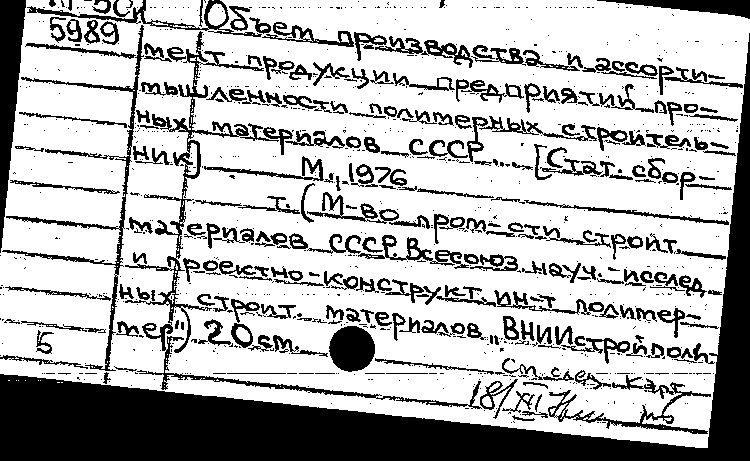 Объем производства и ассорти-
5989
мент продукции предприятий про-
мышленности полимерных строитель-
ных материалов СССР... [Стат. сбор-
ник] М., 1976.
т. (М-во пром-сти строит.
материалов СССР. Всесоюз. науч.-исслед.
и проектно-конструкт. ин-т полимер-
ных строит. материалов „ВНИИстройполи-
мер") 20 см.
5
См. след. карт.
18/XII